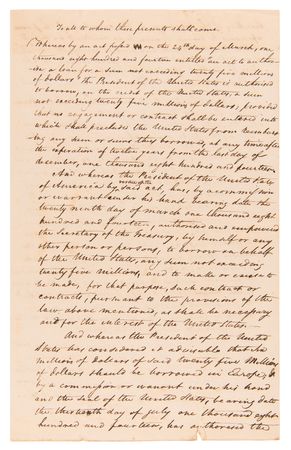 To all to whom these presents shall come.
Whereas by an act passed on the 24th day of March, one
thousand eight hundred and fourteen entitled an act to autho-
rise a loan for a sum not exceeding twenty five millions
of dollars "the President of the United States is authorised
to borrow, on the credit of the United States, a sum
not exceeding twenty five millions of dollars, provided
that no engagement or contract shall be entered into
which shall preclude the United States from reimburs-
ing any sum or sums thus borrowed, at any time after
the expiration of twelve years from the last day of
december, one thousand eight hundred and fourteen
And whereas the President of the United States
of America by said act, has, by a commission
or warrant under his hand bearing date the
twenty ninth day of march one thousand eight
hundred and fourteen, authorised and empowered
the Secretary of the Treasury, by himself or any
other person or persons, to borrow on behalf
of the United States, any sum not exceeding
twenty five millions, and to make or cause to
be made, for that purpose, such contract or
contracts, pursuant to the provisions of the
law above mentioned, as shall be necessary
and for the interest of the United States—
And whereas the President of the United
States has considered it advisable that six
millions of dollars of said twenty five Millions
of dollars should be borrowed in Europe, &
by a commission or warrant under his hand
and the seal of the United States, bearing date
the thirteenth day of july one thousand eight
hundred and fourteen, has authorised the